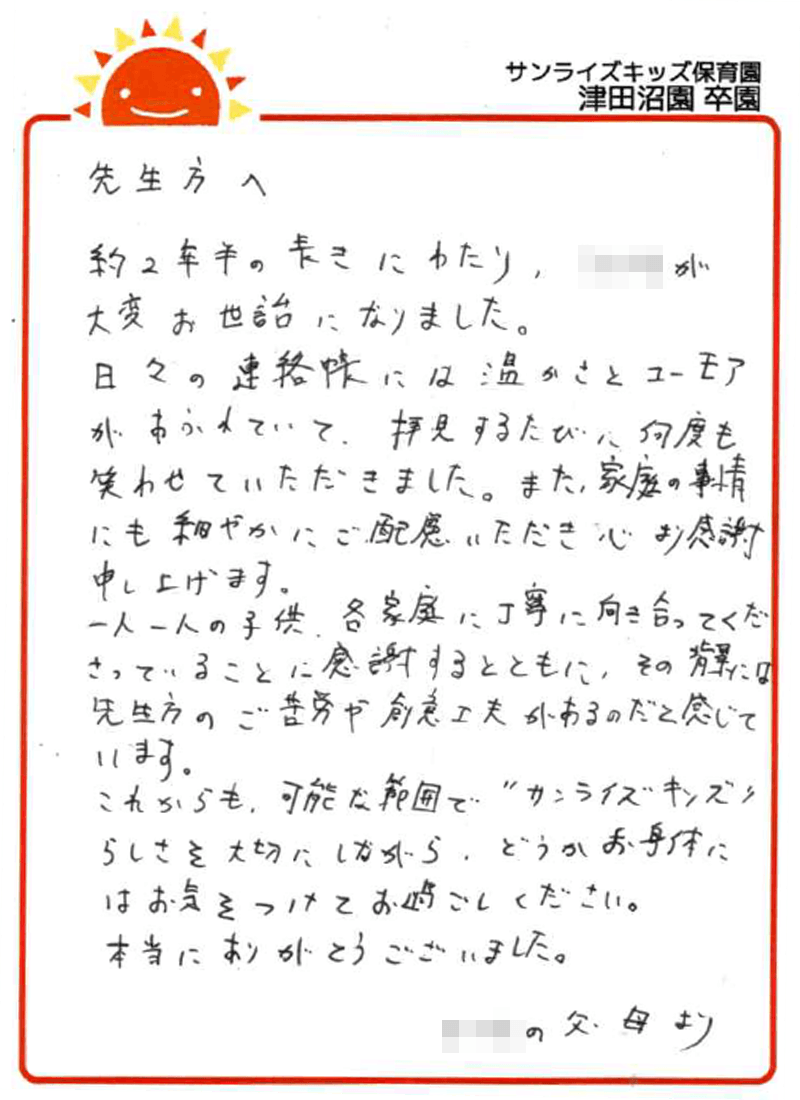 サンライズキッズ保育園
津田沼園 卒園
先生方へ
約2年半の長きにわたり、 が
大変お世話になりました。
日々の連絡帳には温かさとユーモア
があふれていて、拝見するたびに何度も
笑わせていただきました。また、家庭の事情
にも細やかにご配慮いただき心より感謝
申し上げます。
一人一人の子供、各家庭に丁寧に向き合ってくだ
さっていることに感謝するとともに、その背景には
先生方のご苦労や創意工夫があるのだと感じて
います。
これからも、可能な範囲で"サンライズキッズ"
らしさを大切にしながら、どうかお身体に
はお気をつけてお過ごしください。
本当にありがとうございました。
の父・母より